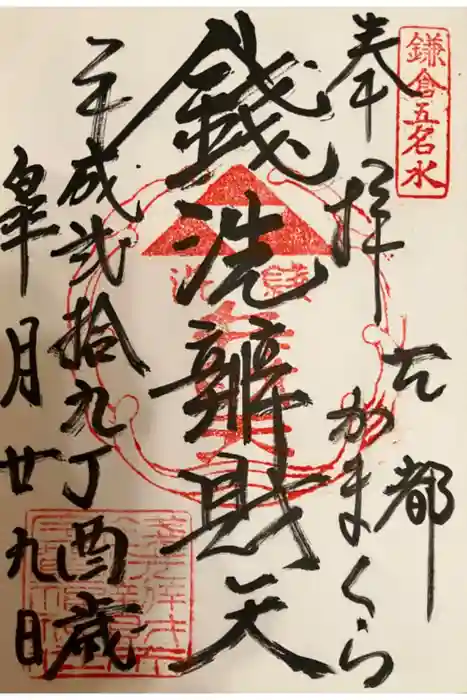 鎌倉五名水
奉拝
古都
かまくら
錢洗辨財天
平成弐拾九丁酉歳
皐月廿九日